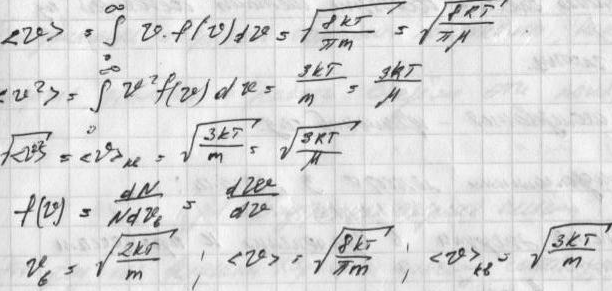 <v> = ∫₀^∞ v·f(v)dv = √(8kT/πm) = √(8RT/πμ)
<v²> = ∫₀^∞ v²f(v)dv = 3kT/m = 3RT/μ
√<v²> = <v>кв = √(3kT/m) = √(3RT/μ)
f(v) = dN/Ndv = dW/dv
vв = √(2kT/m) ; <v> = √(8kT/πm) ; <v>кв = √(3kT/m)